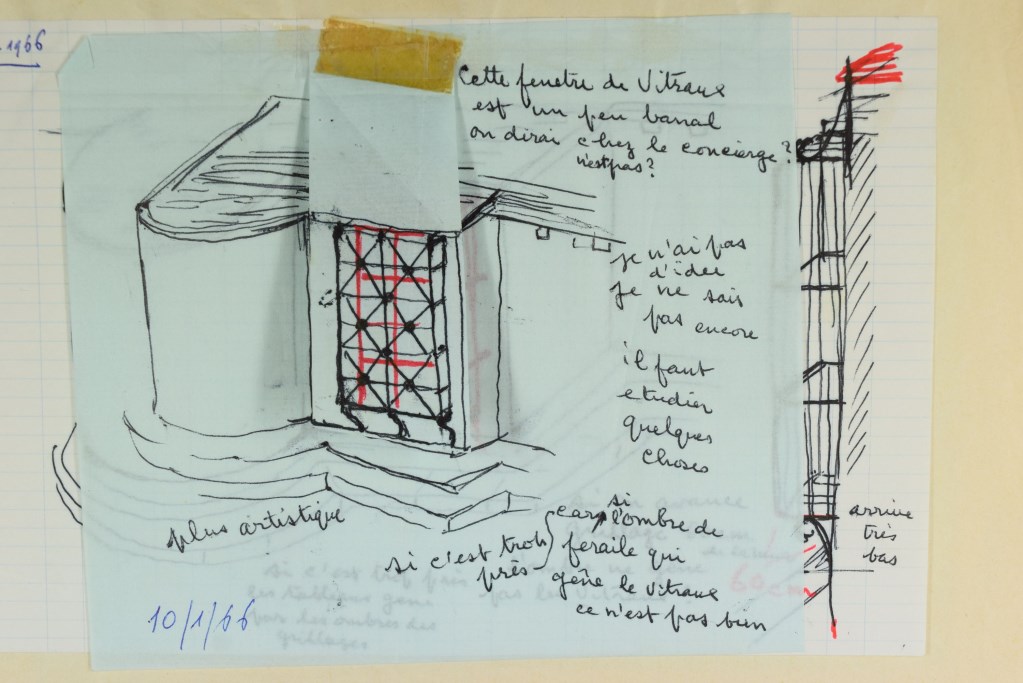 1966
Cette fenetre de Vitraux
est un peu banal
on dirai chez le concierge?
n'est pas?
je n'ai pas
d'idée
je ne sais
pas encore
il faut
etudier
quelques
choses
plus artistique
si c'est trop
près
car si
l'ombre de
feraile qui
gêne le vitraux
ce n'est pas bien
arrive
très
bas
10/1/66
si c'est trop près
les tableaux gene
par les ombres des
grillages
60cm